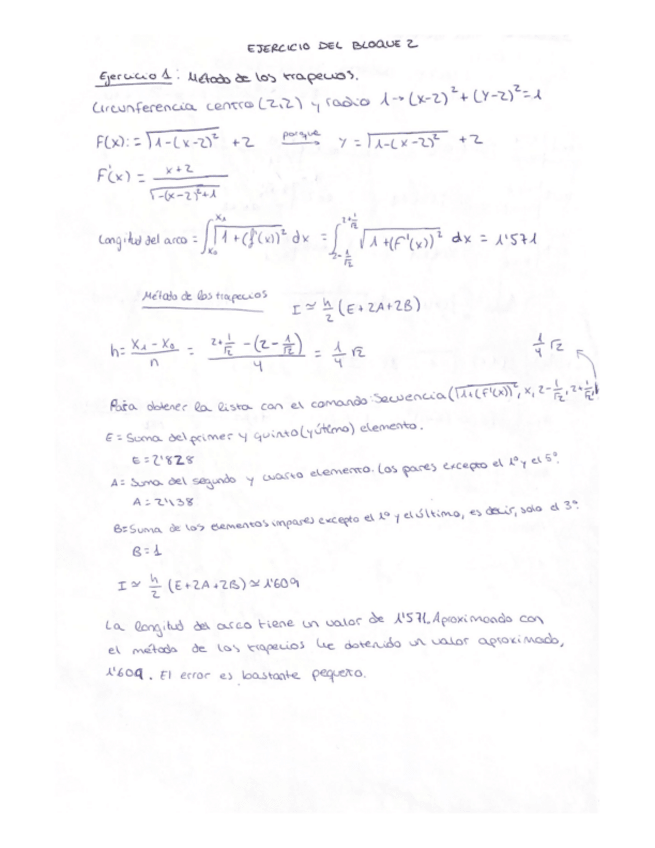 EJERCICIO DEL BLOQUE 2
Ejercicio 1: Método de los trapecios.
Circunferencia centro (2,2) y radio 1 → (x-2)² + (y-2)² = 1
F(x): = √1-(x-2)² + 2 porque → y = √1-(x-2)² + 2
F'(x) = x+2 / √-(x-2)²+1
Longitud del arco = ∫x₀^x₁ √1+(f'(x))² dx = ∫2-1/√2^2+1/√2 √1+(F'(x))² dx = 1'571
Método de los trapecios I ≃ h/2 (E+2A+2B)
h = x₁ - x₀ / n = 2+1/√2 - (2-1/√2) / 4 = 1/4 √2 1/4 √2
Para obtener la lista con el comando Secuencia(√1+(F'(x))², x, 2-1/√2, 2+1/√2,
E = Suma del primer y quinto (y último) elemento.
E = 2'828
A = Suma del segundo y cuarto elemento. Los pares excepto el 1º y el 5º.
A = 2'138
B = Suma de los elementos impares excepto el 1º y el último, es decir, solo el 3º.
B = 1
I ≃ h/2 (E+2A+2B) ≃ 1'609
La longitud del arco tiene un valor de 1'571. Aproximando con
el método de los trapecios he obtenido un valor aproximado,
1'609. El error es bastante pequeño.